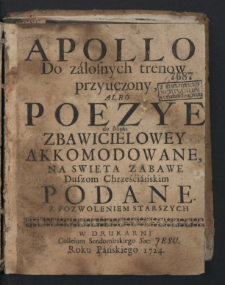 APOLLO
Do żálosnych trenow
1687
przyuczony,
ALBO
POEZYE
do Męki
ZBAWICIELOWEY
AKKOMODOWANE,
NA SWIETA ZABAWE
Duszom Chrześciáńskim
PODANE.
Z POZWOLENIEM STARSZYCH
W DRUKARNI
Collegium Sendomirskiego Soc: JESU,
Roku Páńskiego 1724.